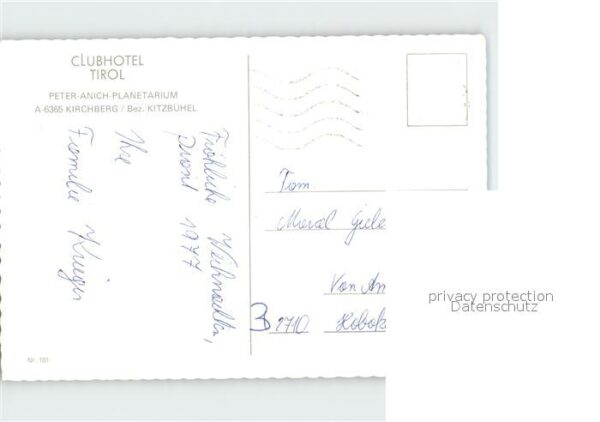 CLUBHOTEL
TIROL
PETER-ANICH-PLANETARIUM
A-6365 KIRCHBERG / Bez. KITZBÜHEL
Fröhliche Weihnachten,
Prosit 1977
Ihre
Familie Krieger
Fam.
Giele
Von Am
B 2710 Hobok
Nr. 101
privacy protection
Datenschutz